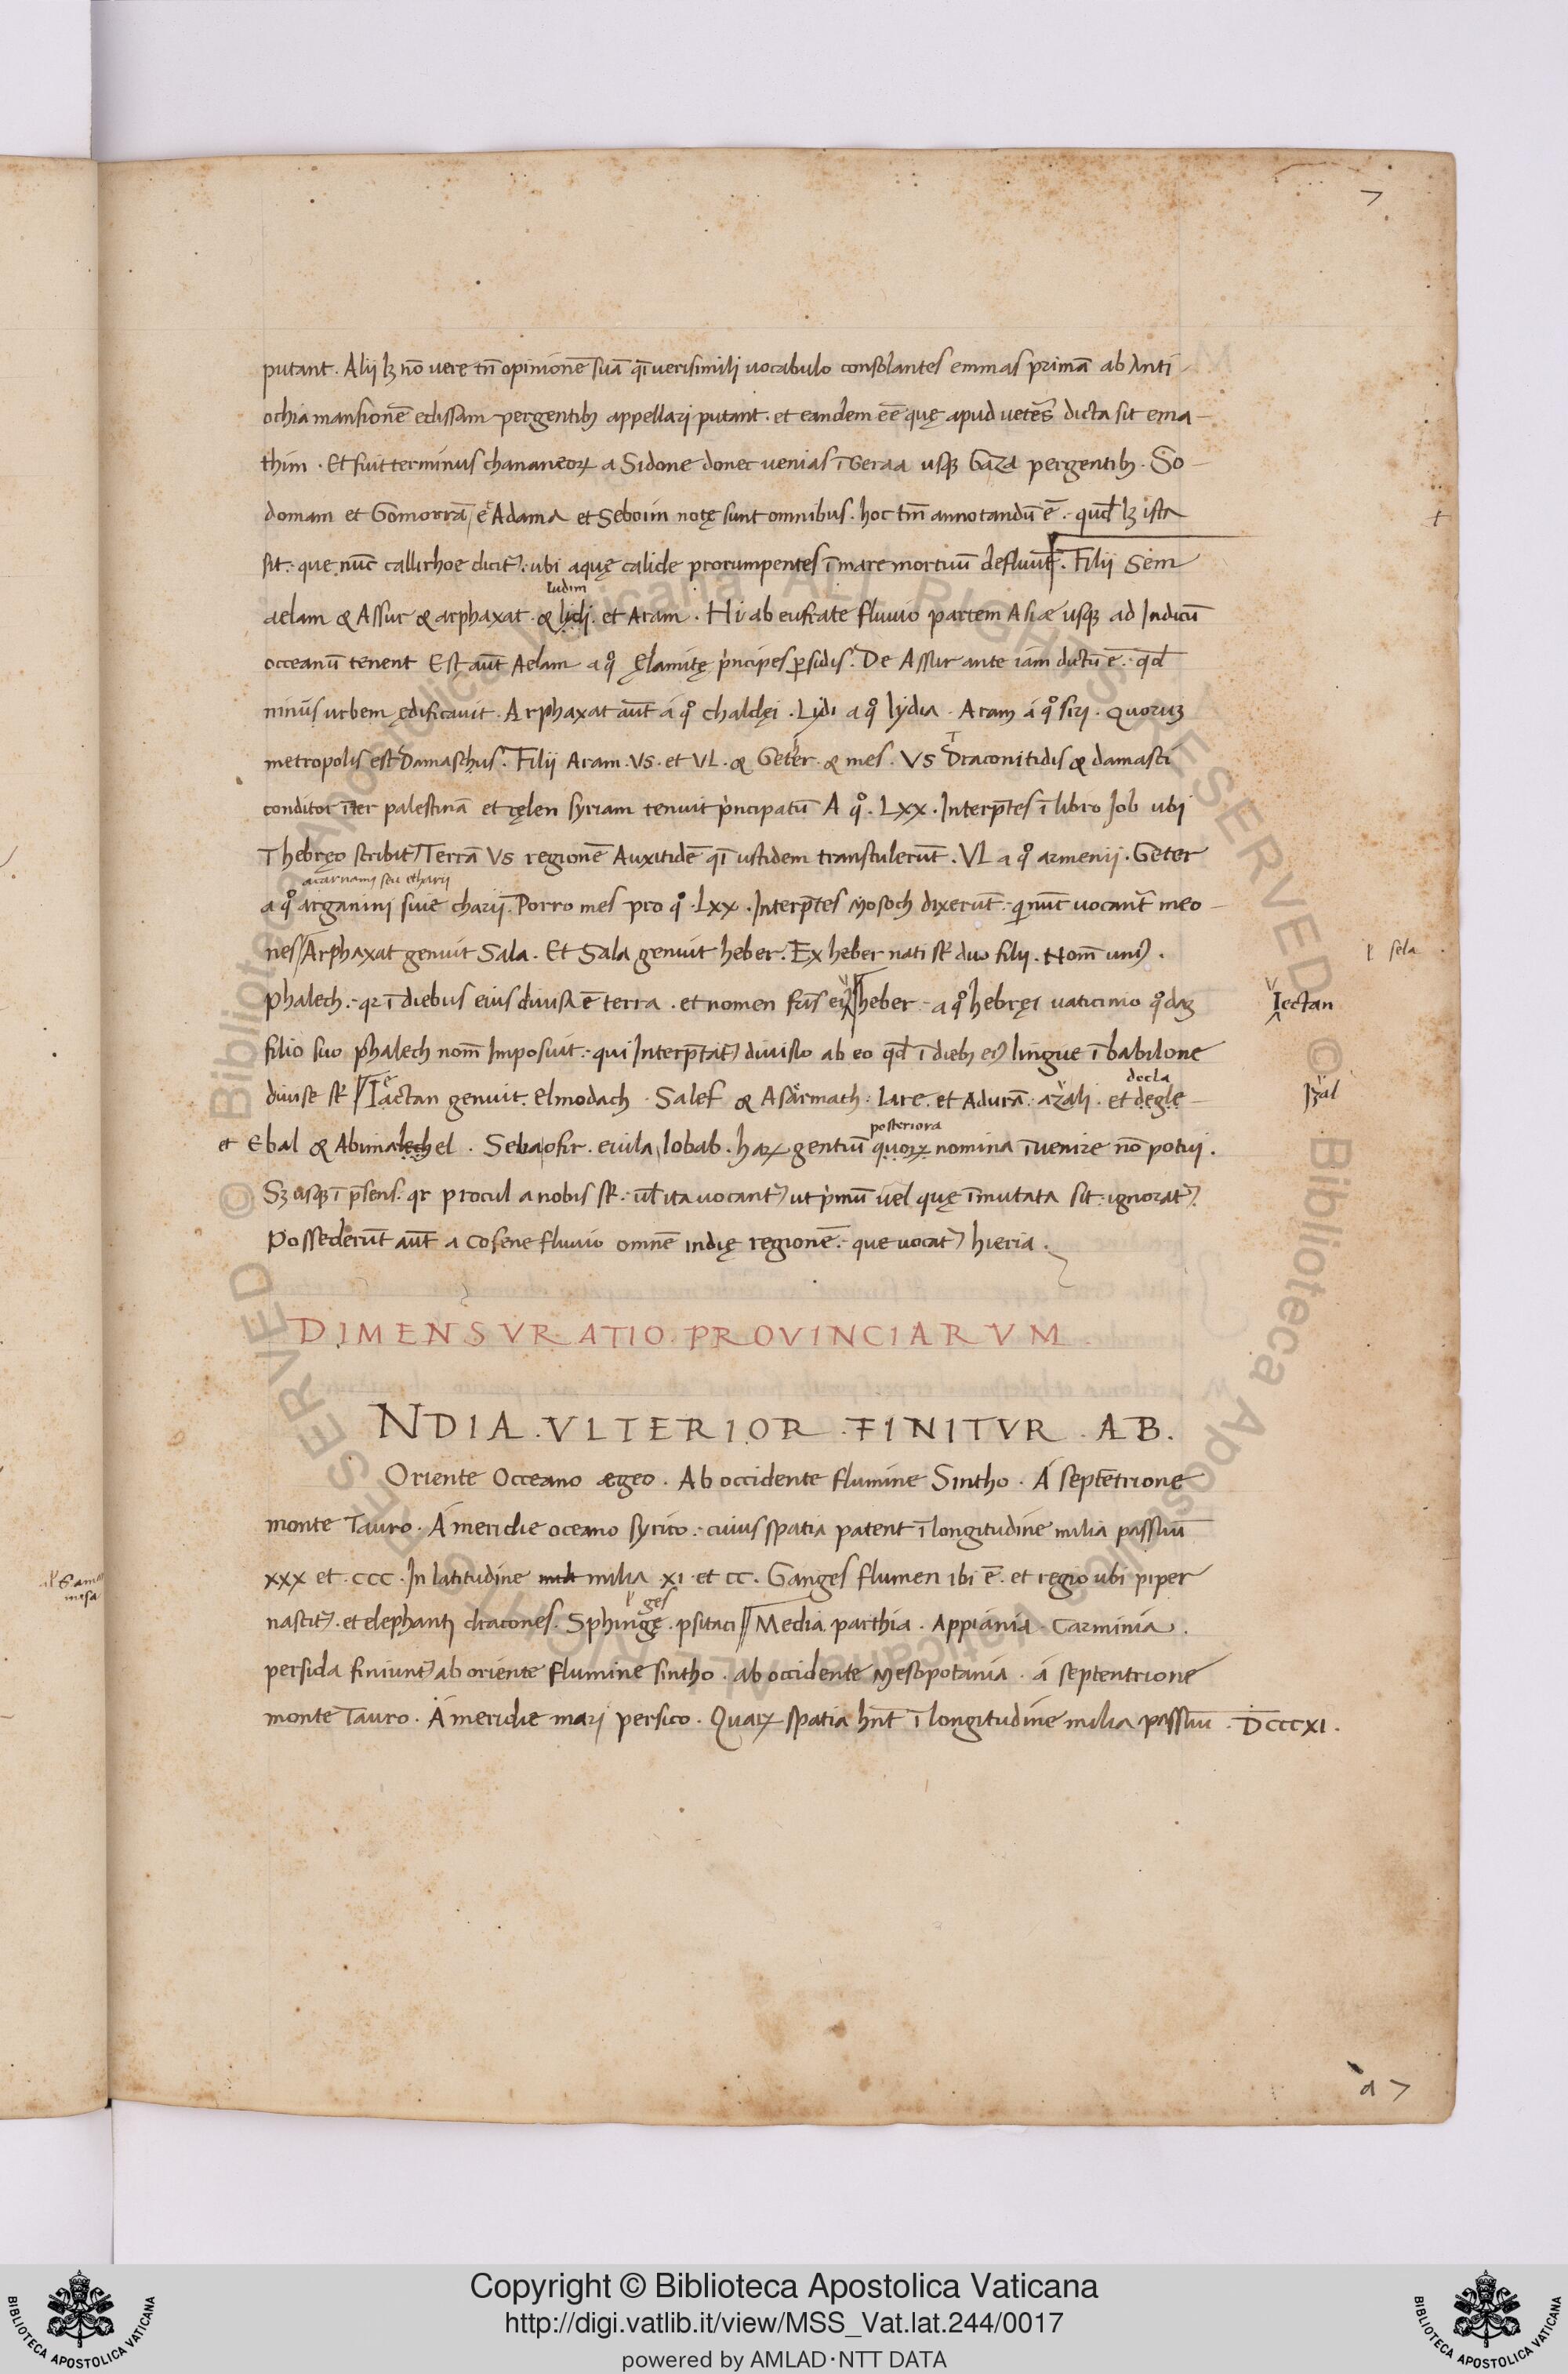 7
putant. Alij lꝫ nō vere tn̄ opinionē suā qͣi verisimili uocabulo consolantes emmas primā ab Anti
ochia mansionē edissam pergentibꝫ appellari putant. et eandem eē quę apud ueteres dicta sit ema
thim. Et fuit terminus chananeoꝝ a Sidone donec uenias ī Geraa usqꝫ Gaza pergentibꝫ. So
domam et Gomorrā, et Adama et Seboim notę sunt omnibus. hoc tm̄ annotandū ē. quod lꝫ ista
sit: que nūc callirhoe dicit᷒: ubi aquę calide prorumpentes ī mare mortuū defluūt. Filij Sem
ludim
aelam & Assur & arphaxat & lidi. et Aram. Hi ab eufrate fluuio partem Asiæ usqꝫ ad Indicū
occeanū tenent Est aūt Aelam a qͦ Ęlamitę pͥncipes ꝑsidis. De Assur ante iam dictū ē. qd̄
ninus urbem ędificauit. Arphaxat aūt á qͦ chaldęi. Lidi a qͦ lydia. Aram á qͦ siri. Quoruꝫ
metropolis est Damaschus. Filij Aram. VS. et VL. & Geter & mes. VS Draconitidis & damasci
conditor īter palestinā et cęlen syriam tenuit pͥncipatū A qͦ. Lxx. Interp̄tes ī libro Job ubi
Thebręo scribit᷒ Terrā Vs regionē Auxitidē qͣi ustidem transtulerūt. VL a qͦ armenij. Geter
acarnanij seu etharij
a qͦ arganini siue charij. Porro mes pro qͦ. Lxx. Interp̄tes Mosoch dixerūt: qͥ nūc uocant᷒ meo
nes Arphaxat genuit Sala. Et Sala genuit heber. Ex heber nati st̄ duo filij. Nom̄ uni᷒.
l' sela
phalech: qꝛ ī diebus eius diuisa ē terra. et nomen fr̄is ei᷒ heber: a qͦ hebręi uaticinio qͦdaꝫ
Iectan
filio suo phalech nom̄ Imposuit: qui Interp̄tat᷒ diuisio ab eo qd̄ ī diebꝫ ei᷒ lingue ī babilone
decla
diuise st̄ Iactan genuit. elmodach. Salef & Asarmath. Iare. et Adurā. azali. et degle
Izal
posteriora
et Ebal & Abimalechel. Seba ofir. euila, Iobab. haꝝ gentiū quoꝝ nomina īuenire nō potui.
Sꝫ usqꝫ ī p̄sens. qꝛ procul a nobis st̄. ul̄ ita uocant᷒ ut pͥmū uel quę īmutata sit: ignorat᷒.
Possederūt aūt a Cofene fluuio omnē indię regionē: que uocat᷒ hieria.
DIMENSVRATIO. PROVINCIARVM.
NDIA. VLTERIOR. FINITVR. AB.
Oriente Occeano ægeo. Ab occidente flumine Sintho. Á septētrione
monte Tauro. Á meridie oceano syrico: cuius spatia patent ī longitudine milia passuū
xxx et. ccc. In latitudine milia xi. et cc. Ganges flumen ibi ē. et regio ubi piper
l' ges
nascit᷒. et elephanti dracones. Sphinge. psitaci Media. parthia. Appiania. Carminia.
persida finiunt᷒ ab oriente flumine sintho. ab occidente Mesopotania. á septentrione
monte Tauro. Á meridie mari persico. Quaꝝ spatia hn̄t ī longitudine milia passuū. DCCCXI.
a 7
Copyright © Biblioteca Apostolica Vaticana
http://digi.vatlib.it/view/MSS_Vat.lat.244/0017
powered by AMLAD·NTT DATA
BIBLIOTECA APOSTOLICA VATICANA
BIBLIOTECA APOSTOLICA VATICANA